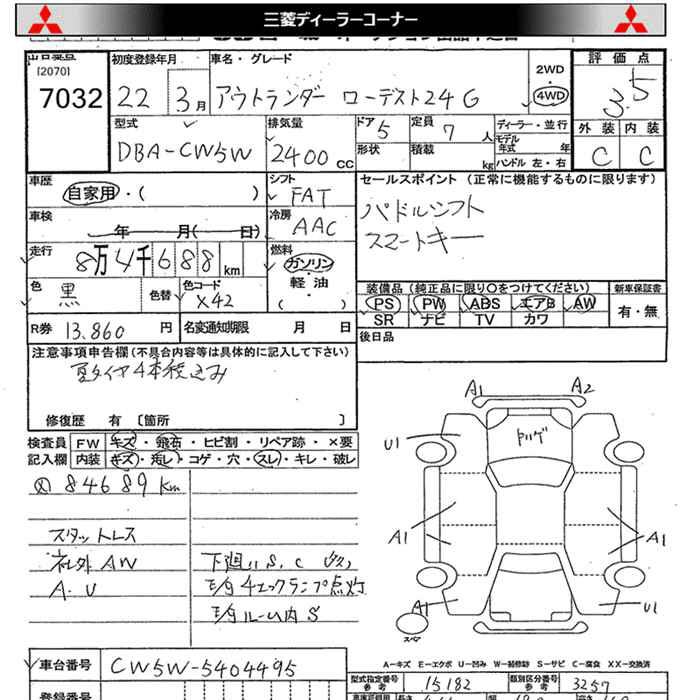 三菱ディーラーコーナー
[2070]
7032
初度登録年月
22 3月
車名・グレード
アウトランダー ローデスト24G
2WD
4WD
評価点
3.5
外装 内装
C C
型式
DBA-CW5W
排気量
2400 CC
ドア 5
定員 7 人
形状
積載 kg
ディーラー・並行
モデル年式 年
ハンドル 左・右
車歴
自家用・( )
シフト
FAT
車検
年 月( 日)
冷房
AAC
走行
8万4千688km
燃料
ガソリン・軽油・( )
色
黒
色替
色コード
X42
R券 13.860 円
名変通知期限 月 日
セールスポイント(正常に機能するものに限ります)
パドルシフト
スマートキー
装備品(純正品に限り〇をつけてください)
PS PW ABS エアB AW
SR ナビ TV カワ
新車保証書
有・無
後日品
注意事項申告欄(不具合内容等は具体的に記入して下さい)
夏タイヤ4本積込み
修復歴 有 〔箇所 〕
検査員記入欄
FW キズ・飛石・ヒビ割・リペア跡・×要
内装 キズ・汚レ・コゲ・穴・スレ・キレ・破レ
84689km
スタットレス
社外AW
A.U
下廻りS,C
モータチェックランプ点灯
ルーム内S
A1 A2
U1
ドルゲ
A1 A1
A1 U1
スペア
A-キズ E-エクボ U-凹み W-補修跡 S-サビ C-腐食 XX-交換済
車台番号 CW5W-5404495
型式指定番号 参考 15182
類別区分番号 参考 3257
登録番号